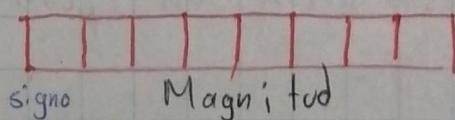 signo Magnitud